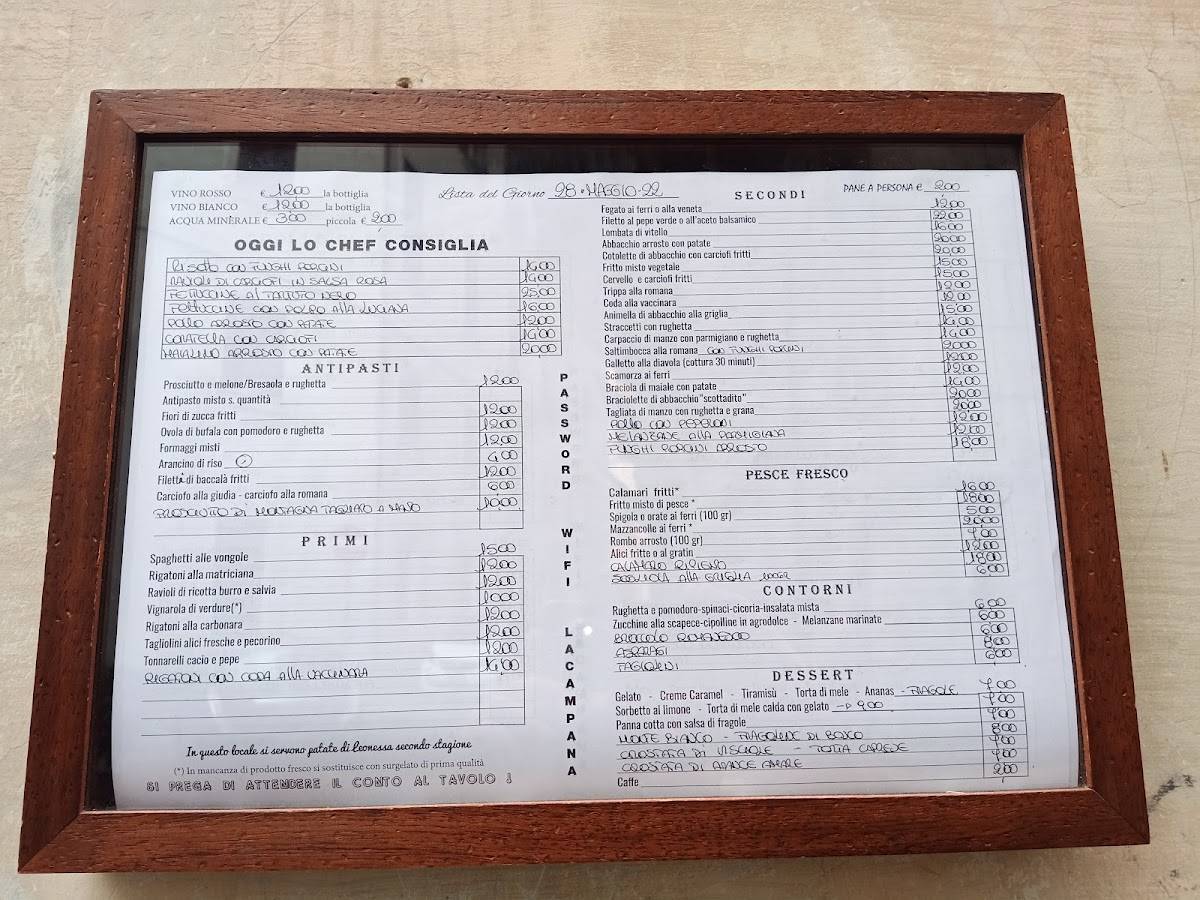 VINO ROSSO € 12,00 la bottiglia
VINO BIANCO € 12,00 la bottiglia
ACQUA MINERALE € 3,00 piccola € 2,00
Lista del Giorno 28·MAGGIO·22
OGGI LO CHEF CONSIGLIA
RISOTTO CON FUNGHI PORCINI 14,00
RAVIOLI DI CARCIOFI IN SALSA ROSA 14,00
FETTUCCINE AL TARTUFO NERO 25,00
FETTUCCINE CON POLPO ALLA LUCIANA 16,00
POLLO ARROSTO CON PATATE 12,00
CORATELLA CON CARCIOFI 14,00
MAIALINO ARROSTO CON PATATE 20,00
ANTIPASTI
Prosciutto e melone/Bresaola e rughetta 12,00
Antipasto misto s. quantità
Fiori di zucca fritti 12,00
Ovola di bufala con pomodoro e rughetta 12,00
Formaggi misti 12,00
Arancino di riso 4,00
Filetti di baccalà fritti 12,00
Carciofo alla giudia - carciofo alla romana 6,00
PROSCIUTTO DI MONTAGNA TAGLIATO A MANO 10,00
PRIMI
Spaghetti alle vongole 15,00
Rigatoni alla matriciana 12,00
Ravioli di ricotta burro e salvia 12,00
Vignarola di verdure(*) 10,00
Rigatoni alla carbonara 12,00
Tagliolini alici fresche e pecorino 12,00
Tonnarelli cacio e pepe 12,00
RIGATONI CON CODA ALLA VACCINARA 14,00
In questo locale si servono patate di Leonessa secondo stagione
(*) In mancanza di prodotto fresco si sostituisce con surgelato di prima qualità
SI PREGA DI ATTENDERE IL CONTO AL TAVOLO !
PASSWORD WIFI LACAMPANA
SECONDI
PANE A PERSONA € 2,00
Fegato ai ferri o alla veneta 12,00
Filetto al pepe verde o all'aceto balsamico 22,00
Lombata di vitello 16,00
Abbacchio arrosto con patate 20,00
Cotolette di abbacchio con carciofi fritti 20,00
Fritto misto vegetale 15,00
Cervello e carciofi fritti 15,00
Trippa alla romana 12,00
Coda alla vaccinara 12,00
Animella di abbacchio alla griglia 15,00
Straccetti con rughetta 14,00
Carpaccio di manzo con parmigiano e rughetta 14,00
Saltimbocca alla romana CON FUNGHI PORCINI 20,00
Galletto alla diavola (cottura 30 minuti) 12,00
Scamorza ai ferri 12,00
Braciola di maiale con patate 14,00
Braciolette di abbacchio"scottadito" 20,00
Tagliata di manzo con rughetta e grana 20,00
POLLO CON PEPERONI 12,00
MELANZANE ALLA PARMIGIANA 12,00
FUNGHI PORCINI ARROSTO 18,00
PESCE FRESCO
Calamari fritti* 16,00
Fritto misto di pesce * 18,00
Spigola o orate ai ferri (100 gr) 5,00
Mazzancolle ai ferri * 20,00
Rombo arrosto (100 gr) 7,00
Alici fritte o al gratin 12,00
CALAMARO RIPIENO 18,00
SOGLIOLA ALLA GRIGLIA 100GR 6,00
CONTORNI
Rughetta e pomodoro-spinaci-cicoria-insalata mista 6,00
Zucchine alla scapece-cipolline in agrodolce - Melanzane marinate 6,00
BROCCOLO ROMANESCO 6,00
ASPARAGI 8,00
FAGIOLINI 6,00
DESSERT
Gelato - Creme Caramel - Tiramisù - Torta di mele - Ananas - FRAGOLE 7,00
Sorbetto al limone - Torta di mele calda con gelato → 9,00 7,00
Panna cotta con salsa di fragole 7,00
MONTE BIANCO - FRAGOLINE DI BOSCO 8,00
CROSTATA DI VISCIOLE - TORTA CAPRESE 7,00
CROSTATA DI ARANCE AMARE 7,00
Caffe 2,00